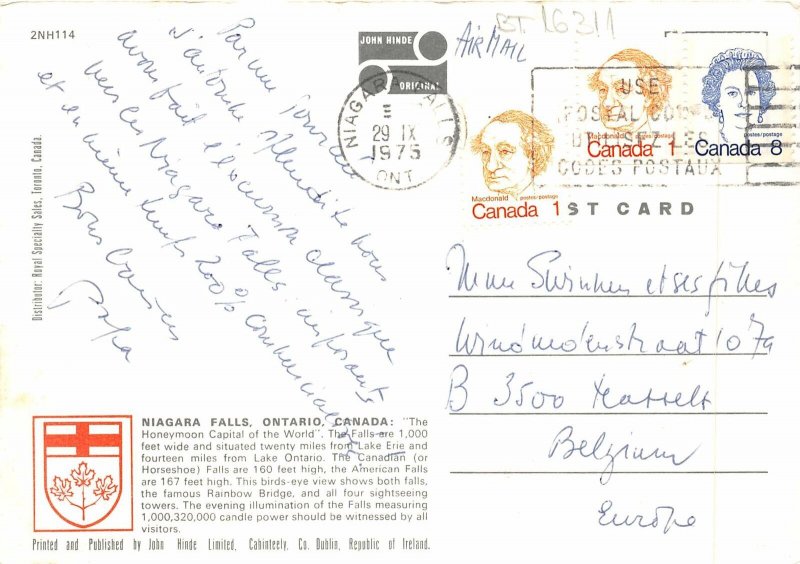 2NH114
JOHN HINDE
ORIGINAL
AIR MAIL
BT 16311
NIAGARA FALLS
29 IX
1975
ONT
USE
POSTAL CODES
CODES POSTAUX
Macdonald postes/postage
Canada 1
Macdonald postes/postage
Canada 1
postes/postage
Canada 8
ST CARD
Par une journée
d'automne splendide nous
avons fait l'excursion classique
vers les Niagara Falls imposants
et en même temps 200% commercialisés
Bons baisers
Papa
Mme Swinnen et ses filles
Windmolenstraat 107a
B 3500 Hasselt
Belgium
Europe
Distributor: Royal Specialty Sales, Toronto, Canada.
NIAGARA FALLS, ONTARIO, CANADA: "The
Honeymoon Capital of the World". The Falls are 1,000
feet wide and situated twenty miles from Lake Erie and
fourteen miles from Lake Ontario. The Canadian (or
Horseshoe) Falls are 160 feet high, the American Falls
are 167 feet high. This birds-eye view shows both falls,
the famous Rainbow Bridge, and all four sightseeing
towers. The evening illumination of the Falls measuring
1,000,320,000 candle power should be witnessed by all
visitors.
Printed and Published by John Hinde Limited, Cabinteely, Co. Dublin, Republic of Ireland.